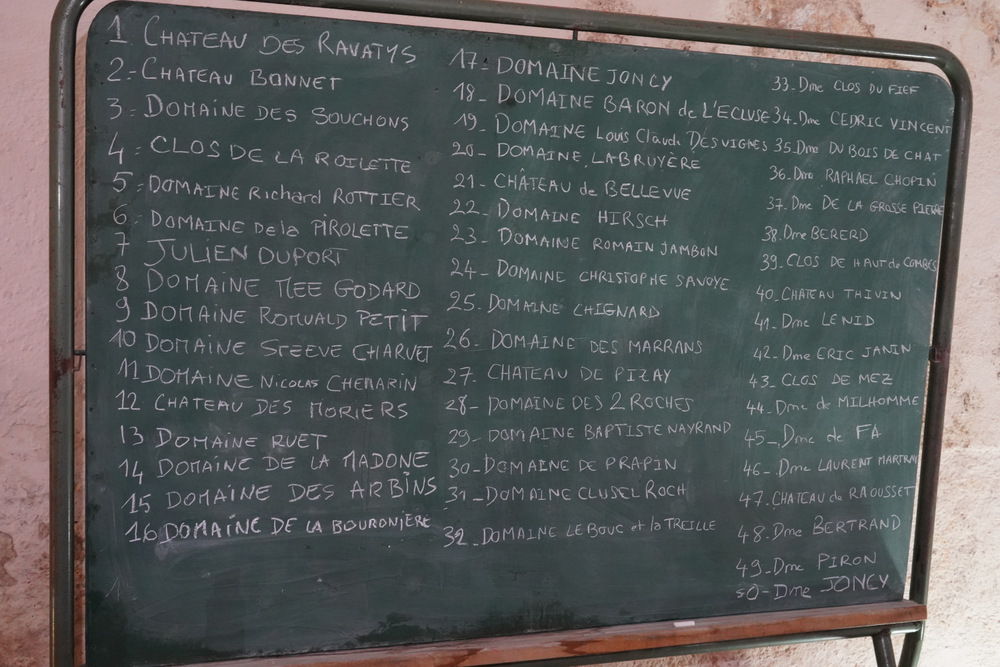 1 CHATEAU DES RAVATYS
2- CHATEAU BONNET
3- DOMAINE DES SOUCHONS
4- CLOS DE LA ROILETTE
5- DOMAINE Richard ROTTIER
6- DOMAINE de la PIROLETTE
7 JULIEN DUPORT
8 DOMAINE MEE GODARD
9 DOMAINE ROMUALD PETIT
10 DOMAINE STEEVE CHARVET
11 DOMAINE NICOLAS CHEMARIN
12 CHATEAU DES MORIERS
13 DOMAINE RUET
14 DOMAINE DE LA MADONE
15 DOMAINE DES ARBINS
16 DOMAINE DE LA BOURONIERE
17- DOMAINE JONCY
18- DOMAINE BARON de L'ECLUSE
19- DOMAINE Louis Claude DESVIGNES
20- DOMAINE LABRUYÈRE
21- CHÂTEAU de BELLEVUE
22- DOMAINE HIRSCH
23- DOMAINE ROMAIN JAMBON
24- DOMAINE CHRISTOPHE SAVOYE
25- DOMAINE CHIGNARD
26- DOMAINE DES MARRANS
27- CHATEAU DE PIZAY
28- DOMAINE DES 2 ROCHES
29- DOMAINE BAPTISTE NAYRAND
30- DOMAINE DE PRAPIN
31- DOMAINE CLUSEL ROCH
32- DOMAINE LE BOUC et la TREILLE
33- Dme CLOS DU FIEF
34- Dme CEDRIC VINCENT
35- Dme DU BOIS DE CHAT
36- Dme RAPHAEL CHOPIN
37- Dme DE LA GROSSE PIERRE
38- Dme BERERD
39- CLOS DE HAUT de COMBES
40- CHATEAU THIVIN
41- Dme LENID
42- Dme ERIC JANIN
43- CLOS DE MEZ
44- Dme de MILHOMME
45- Dme de FA
46- Dme LAURENT MARTRAY
47- CHATEAU de RAOUSSET
48- Dme BERTRAND
49- Dme PIRON
50- Dme JONCY